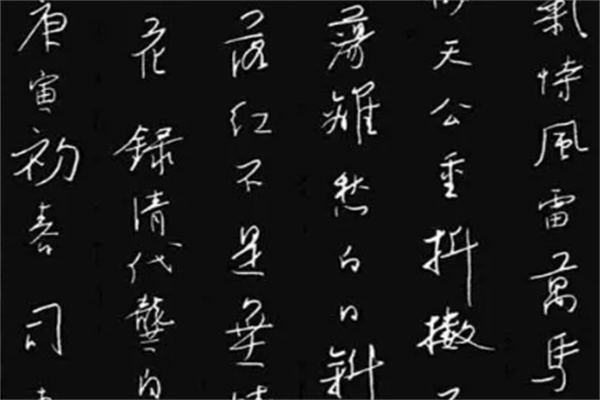 氣恃風雷萬馬
天公重抖擻
蕩離愁白日斜
落紅不是無情
花 錄清代龔自
庚寅初春 司